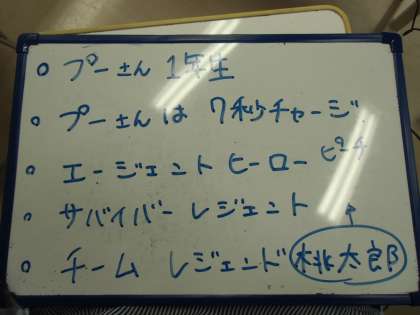 ○ プーさん 1年生
○ プーさんは 7秒チャージ
○ エージェント ヒーロー ピーチ
○ サバイバー レジェント
○ チーム レジェンド 桃太郎